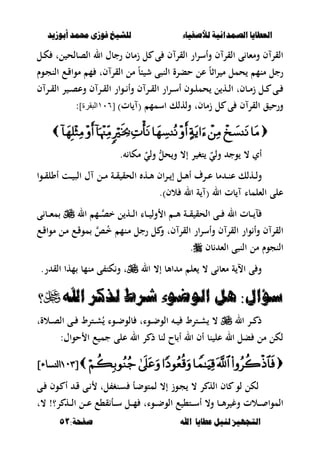 العطايا الصمدانية للأصفياء
للشيخ فوزى محمد أبوزيد
القرآن ومعانى القرآن وأسرار القرآن فى كل زمان رجال الله الصالحين، فكل
رجل منهم يحمل ميراثاً عن حضرة النبى شيئاً من القرآن، فهم مواقع النجوم
فى كل زمان، الذين يحملون أسرار القرآن وأنوار القرآن وعصير القرآن
ورحيق القرآن فى كل زمان، ولذلك اسمهم (آيات) [١٠٦البقرة]:
﴿ مَا نَنسَخْ مِنْ ءَايَةٍ أَوْ نُنسِهَا نَأْتِ بِخَيْرٍ مِّنْهَآ أَوْ مِثْلِهَآ ﴾
أي لا يوجد وليٌ يتغير إلا ويحلُّ وليٌ مكانه.
ولذلك عندما عرف أهل إيران هذه الحقيقة من آل البيت أطلقوا
على العلماء آيات الله (آية الله فلان).
فآيات الله فى الحقيقة هم الأولياء الذين خصَّهم الله ﷻ بمعانى
القرآن وأنوار القرآن وأسرار القرآن، وكل رجل منهم خُصَّ بموقع من مواقع
النجوم من النبى العدنان ﷺ.
وفى الآية معانى لا يعلم مداها إلا الله ﷻ، ونكتفى منها بهذا القدر.
سؤال: هل الوضوء شرط لذكر الله ﷻ؟
ذكر الله ﷻ لا يشترط فيه الوضوء، فالوضوء يُشترط فى الصلاة،
لكن من فضل الله علينا أن الله أباح لنا ذكر الله على جميع الأحوال:
﴿ فَٱذْكُرُوا۟ ٱللَّهَ قِيَـٰمًا وَقُعُودًا وَعَلَىٰ جُنُوبِكُمْ ﴾ [١٠٣النساء]
لكن لو كان الذكر لا يجوز إلا لمتوضأ فسنغفل، لأنى قد أكون فى
المواصلات وغيرها ولا أستطيع الوضوء، فهل سأنقطع عن الذكر؟! لا،
التجهيز لنيل عطايا الله
صفحة:٥٢